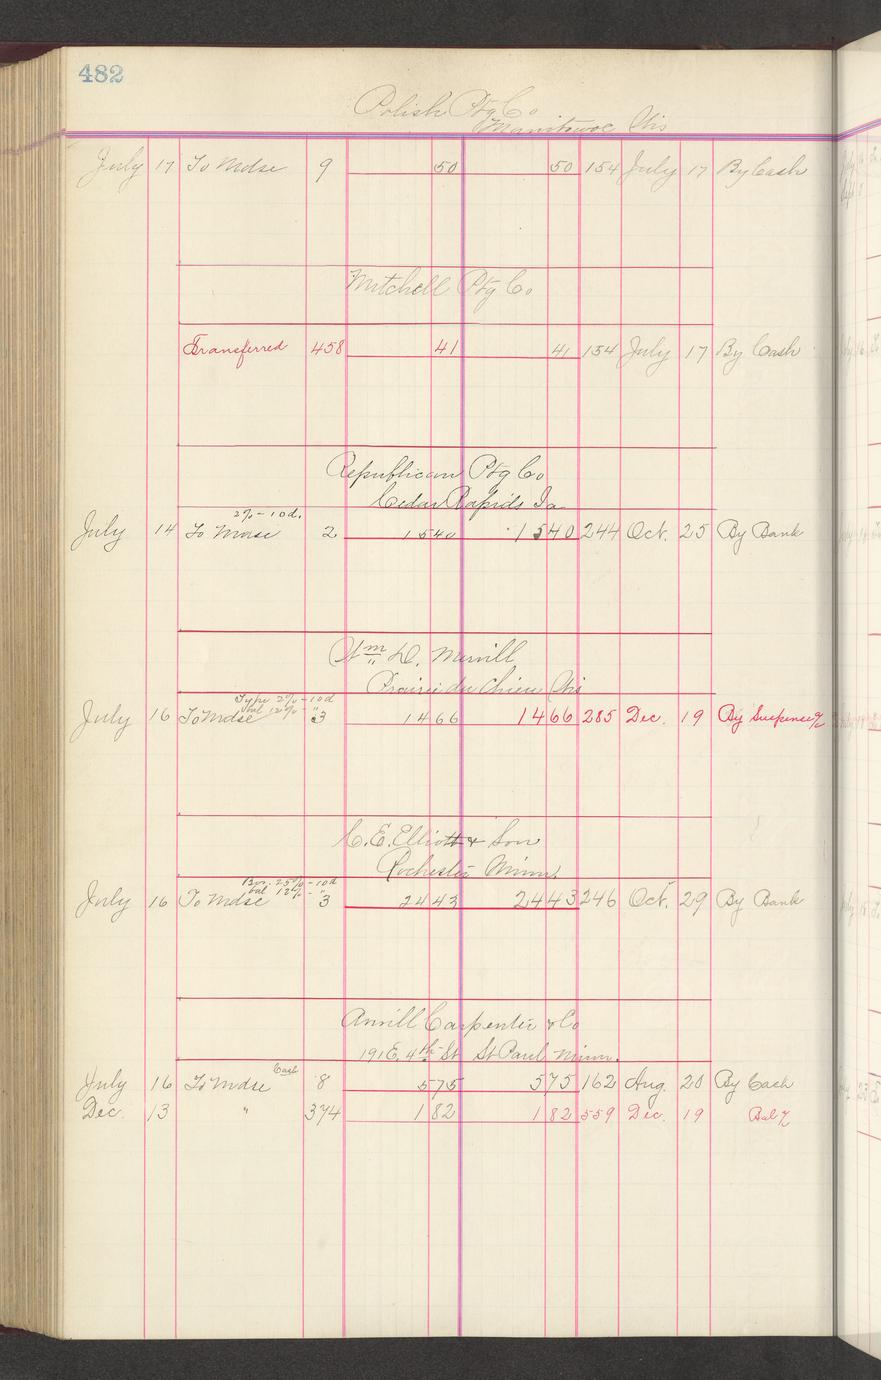 482
Polish Ptg Co
Manitowoc Wis
July 17 To Mdse 9 50 50 154 July 17 By Cash
Mitchell Ptg Co
Transferred 458 41 41 154 July 17 By Cash
Republican Ptg Co
Cedar Rapids Ia
2% - 10 d.
July 14 To Mdse 2 1540 1540 244 Oct. 25 By Bank
Wm D. Merrill
Prairie du Chien Wis
Type 2% - 10 d
bal 12% - "
July 16 To Mdse 3 1466 1466 285 Dec. 19 By Suspense a/c
C. E. Elliott & Son
Rochester Minn.
25% - 10 d
bal 12% - "
July 16 To Mdse 3 2443 2443 246 Oct. 29 By Bank
Carpenter & Co
191 E. 4th St St Paul Minn.
Cash
July 16 To Mdse 8 575 575 162 Aug. 20 By Cash
Dec. 13 " 374 182 182 559 Dec. 19 Bal